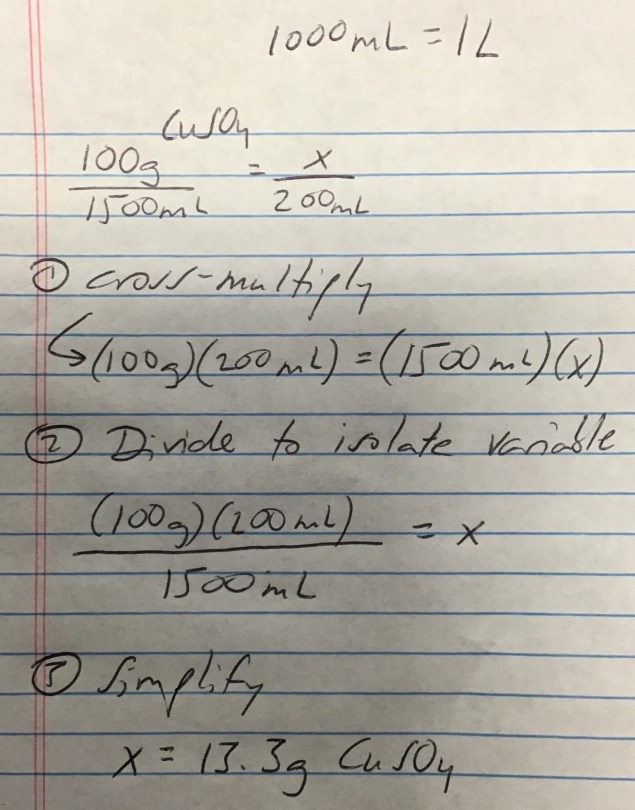 1000mL = 1L
CuSO4
100g/1500mL = x/200mL
① cross-multiply
↳ (100g)(200mL) = (1500mL)(x)
② Divide to isolate variable
(100g)(200mL)/1500mL = x
③ Simplify
x = 13.3g CuSO4